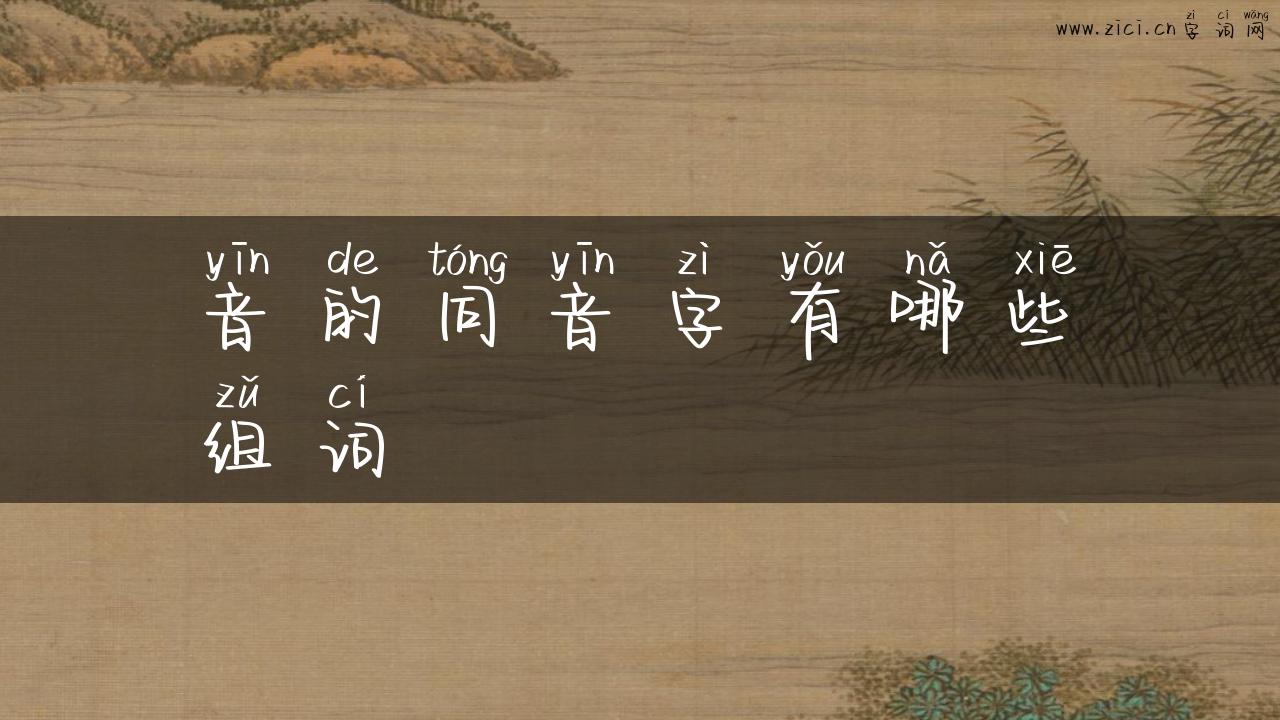 zì cí wǎng
www.zici.cn 字 词 网
yīn de tóng yīn zì yǒu nǎ xiē
音 的 同 音 字 有 哪 些
zǔ cí
组 词